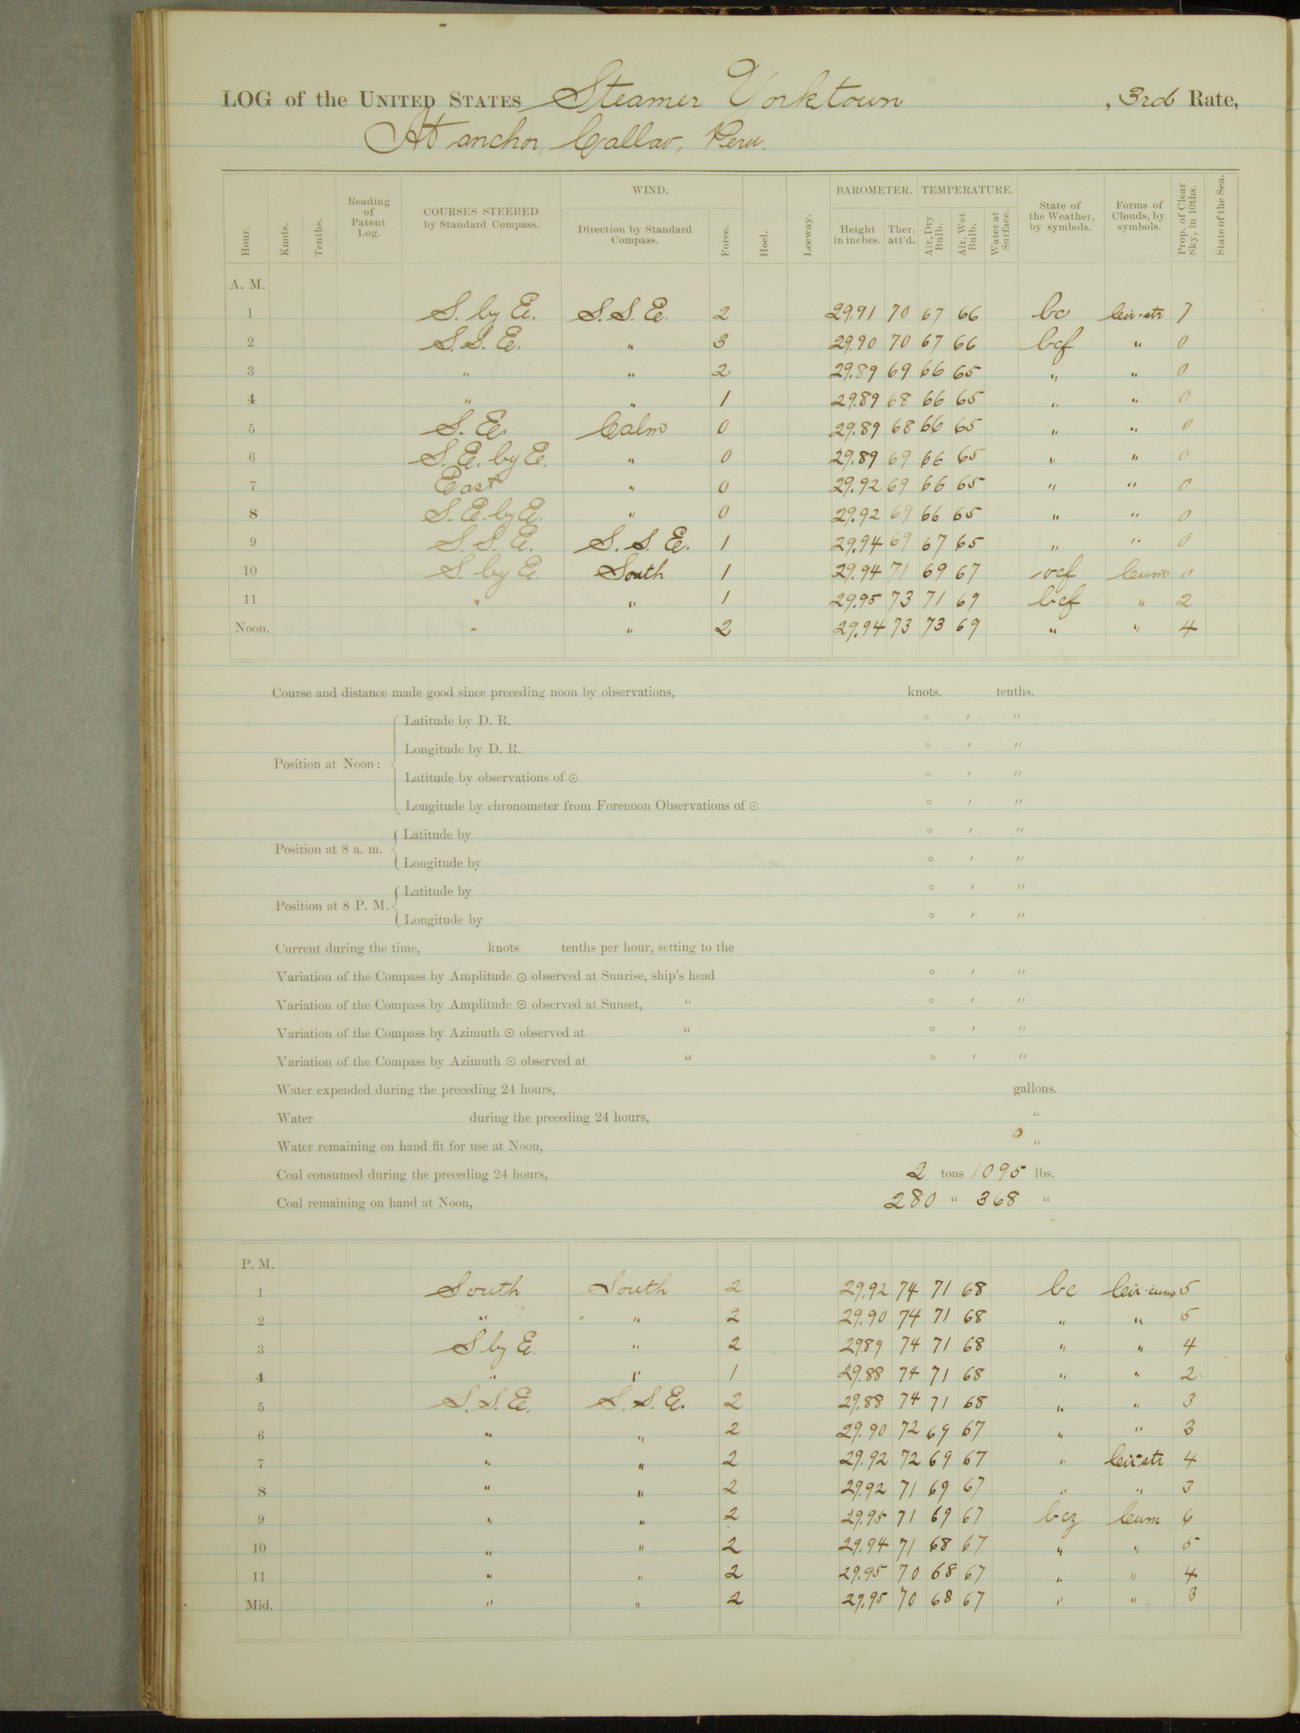 LOG of the UNITED STATES Steamer Yorktown , 3rd Rate,
At anchor, Callao, Peru.
Hour. Knots. Tenths. Reading of Patent Log. COURSES STEERED by Standard Compass. WIND. Direction by Standard Compass. Force. Heel. Leeway. BAROMETER. Height in inches. Ther. att'd. TEMPERATURE. Air, Dry Bulb. Air, Wet Bulb. Water at Surface. State of the Weather, by symbols. Forms of Clouds, by symbols. Prop. of Clear Sky, in 10ths. State of the Sea.
A. M.
1 S. by E. S.S.E. 2 29.91 70 67 66 bc Cir-str 7
2 S.S.E. " 3 29.90 70 67 66 bcf " 0
3 " " 2 29.89 69 66 65 " " 0
4 " " 1 29.89 68 66 65 " " 0
5 S.E. Calm 0 29.89 68 66 65 " " 0
6 S.E. by E. " 0 29.89 69 66 65 " " 0
7 East " 0 29.92 69 66 65 " " 0
8 S.E. by E. " 0 29.92 69 66 65 " " 0
9 S.S.E. S.S.E. 1 29.94 69 67 65 " " 0
10 S. by E. South 1 29.94 71 69 67 ocf Cum 0
11 " " 1 29.95 73 71 69 bcf " 2
Noon. " " 2 29.94 73 73 69 " " 4
Course and distance made good since preceding noon by observations, knots. tenths.
Position at Noon:
Latitude by D. R. ° ′ ″
Longitude by D. R. ° ′ ″
Latitude by observations of ☉ ° ′ ″
Longitude by chronometer from Forenoon Observations of ☉ ° ′ ″
Position at 8 a. m.
Latitude by ° ′ ″
Longitude by ° ′ ″
Position at 8 P. M.
Latitude by ° ′ ″
Longitude by ° ′ ″
Current during the time, knots tenths per hour, setting to the
Variation of the Compass by Amplitude ☉ observed at Sunrise, ship's head ° ′ ″
Variation of the Compass by Amplitude ☉ observed at Sunset, " ° ′ ″
Variation of the Compass by Azimuth ☉ observed at " ° ′ ″
Variation of the Compass by Azimuth ☉ observed at " ° ′ ″
Water expended during the preceding 24 hours, gallons.
Water during the preceding 24 hours, "
Water remaining on hand fit for use at Noon, "
Coal consumed during the preceding 24 hours, 2 tons 1095 lbs.
Coal remaining on hand at Noon, 280 " 368 "
P. M.
1 South South 2 29.92 74 71 68 bc Cir-cum 5
2 " " 2 29.90 74 71 68 " " 5
3 S by E. " 2 2989 74 71 68 " " 4
4 " " 1 29.88 74 71 68 " " 2
5 S.S.E. S.S.E. 2 29.88 74 71 68 " " 3
6 " " 2 29.90 72 69 67 " " 3
7 " " 2 29.92 72 69 67 " Cir-str 4
8 " " 2 29.92 71 69 67 " " 3
9 " " 2 29.95 71 69 67 bcz Cum 6
10 " " 2 29.94 71 68 67 " " 5
11 " " 2 29.95 70 68 67 " " 4
Mid. " " 2 29.95 70 68 67 " " 3